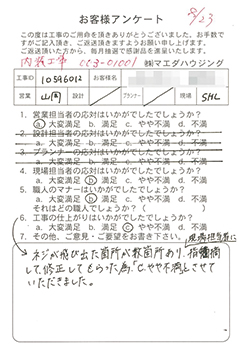 お客様アンケート
8/23
この度は工事のご用命を頂きありがとうございました。お手数で
すがご記入頂き、ご返送頂きますようお願い申し上げます。
ご返送頂いた方から、毎月抽選で感謝品を進呈いたします。
内装工事 cc3-01001 ㈱マエダハウジング
工事ID 10596012 お客様名
営業 山岡 設計 プランナー 現場 SHL
1. 営業担当者の対応はいかがでしたでしょうか？
a 大変満足 b. 満足 c. やや不満 d. 不満
2. 設計担当者の対応はいかがでしたでしょうか？
a. 大変満足 b. 満足 c. やや不満 d. 不満
3. プランナーの対応はいかがでしたでしょうか？
a. 大変満足 b. 満足 c. やや不満 d. 不満
4. 現場担当者の対応はいかがでしたでしょうか？
a. 大変満足 b 満足 c. やや不満 d. 不満
5. 職人のマナーはいかがでしたでしょうか？
a. 大変満足 b 満足 c. やや不満 d. 不満
それはどの職人でしょうか？（ ）
6. 工事の仕上がりはいかがでしたでしょうか？
a. 大変満足 b. 満足 c やや不満 d. 不満
7. その他、ご意見・ご要望をお書き下さい。
現場担当者に
ネジが飛び出た箇所が数箇所あり、指摘
して、修正してもらった為、"c.やや不満"とさせて
いただきました。